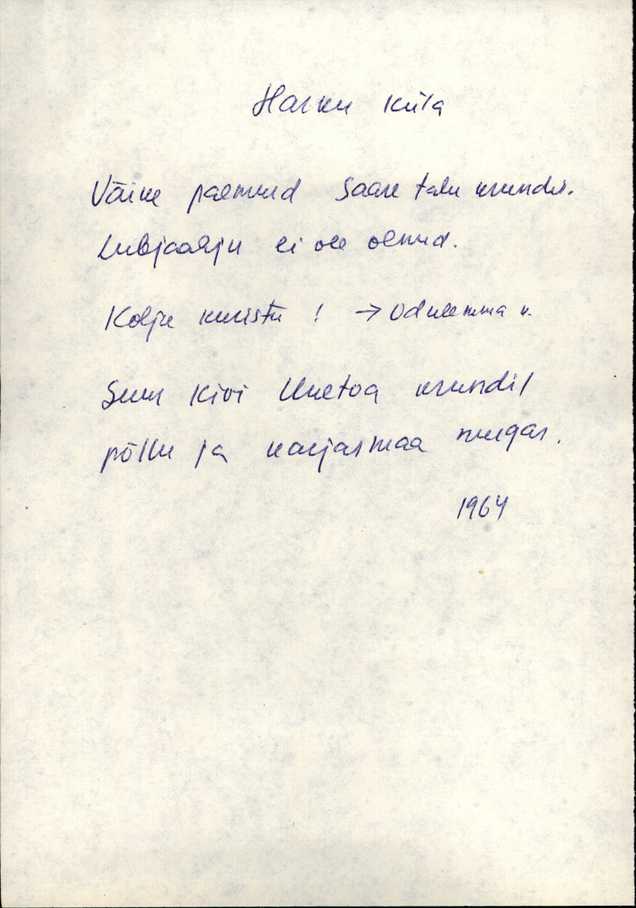 Harku küla
Väike paemurd Saare talu krundil.
Lubjaahju ei ole olnud.
Kolju kuristu! → Odulemma k.
Suur kivi Uuetoa krundil
põllu ja karjasmaa nurgas.
1964